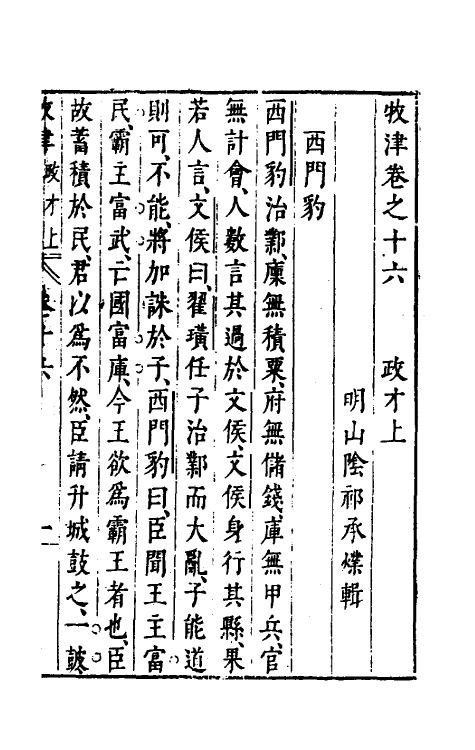 牧津卷之十六　　政才上
明山陰祁承㸁輯
西門豹
西門豹治鄴、廩無積粟、府無儲錢、庫無甲兵、官
無計會、人數言其過於文侯、文侯身行其縣、果
若人言、文侯曰、翟璜任子治鄴而大亂、子能道
則可、不能、將加誅於子、西門豹曰、臣聞王主富
民、霸主富武、亡國富庫、今王欲爲霸王者也、臣
故蓄積於民、君以爲不然、臣請升城鼓之、一鼓
牧津 政才上 卷十六 一